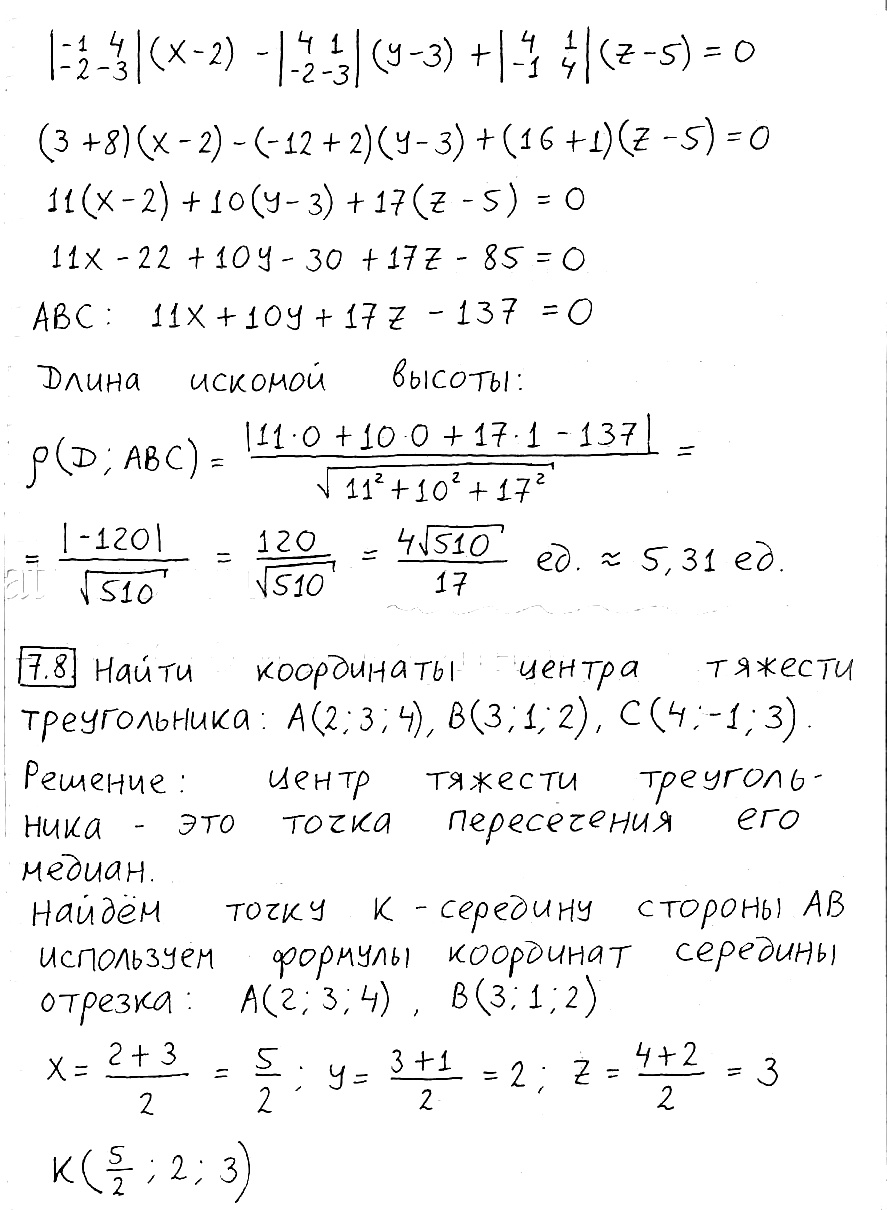 |-1 4; -2 -3|(x-2) - |4 1; -2 -3|(y-3) + |4 1; -1 4|(z-5) = 0
(3+8)(x-2) - (-12+2)(y-3) + (16+1)(z-5) = 0
11(x-2) + 10(y-3) + 17(z-5) = 0
11x - 22 + 10y - 30 + 17z - 85 = 0
ABC: 11x + 10y + 17z - 137 = 0
Длина искомой высоты:
ρ(D; ABC) = |11·0 + 10·0 + 17·1 - 137| / √(11² + 10² + 17²) =
= |-120| / √510 = 120 / √510 = 4√510 / 17 ед. ≈ 5,31 ед.
7.8 Найти координаты центра тяжести
треугольника: A(2; 3; 4), B(3; 1; 2), C(4; -1; 3).
Решение: центр тяжести треуголь-
ника - это точка пересечения его
медиан.
Найдём точку K - середину стороны AB
используем формулы координат середины
отрезка: A(2; 3; 4), B(3; 1; 2)
x = (2+3)/2 = 5/2; y = (3+1)/2 = 2; z = (4+2)/2 = 3
K(5/2; 2; 3)